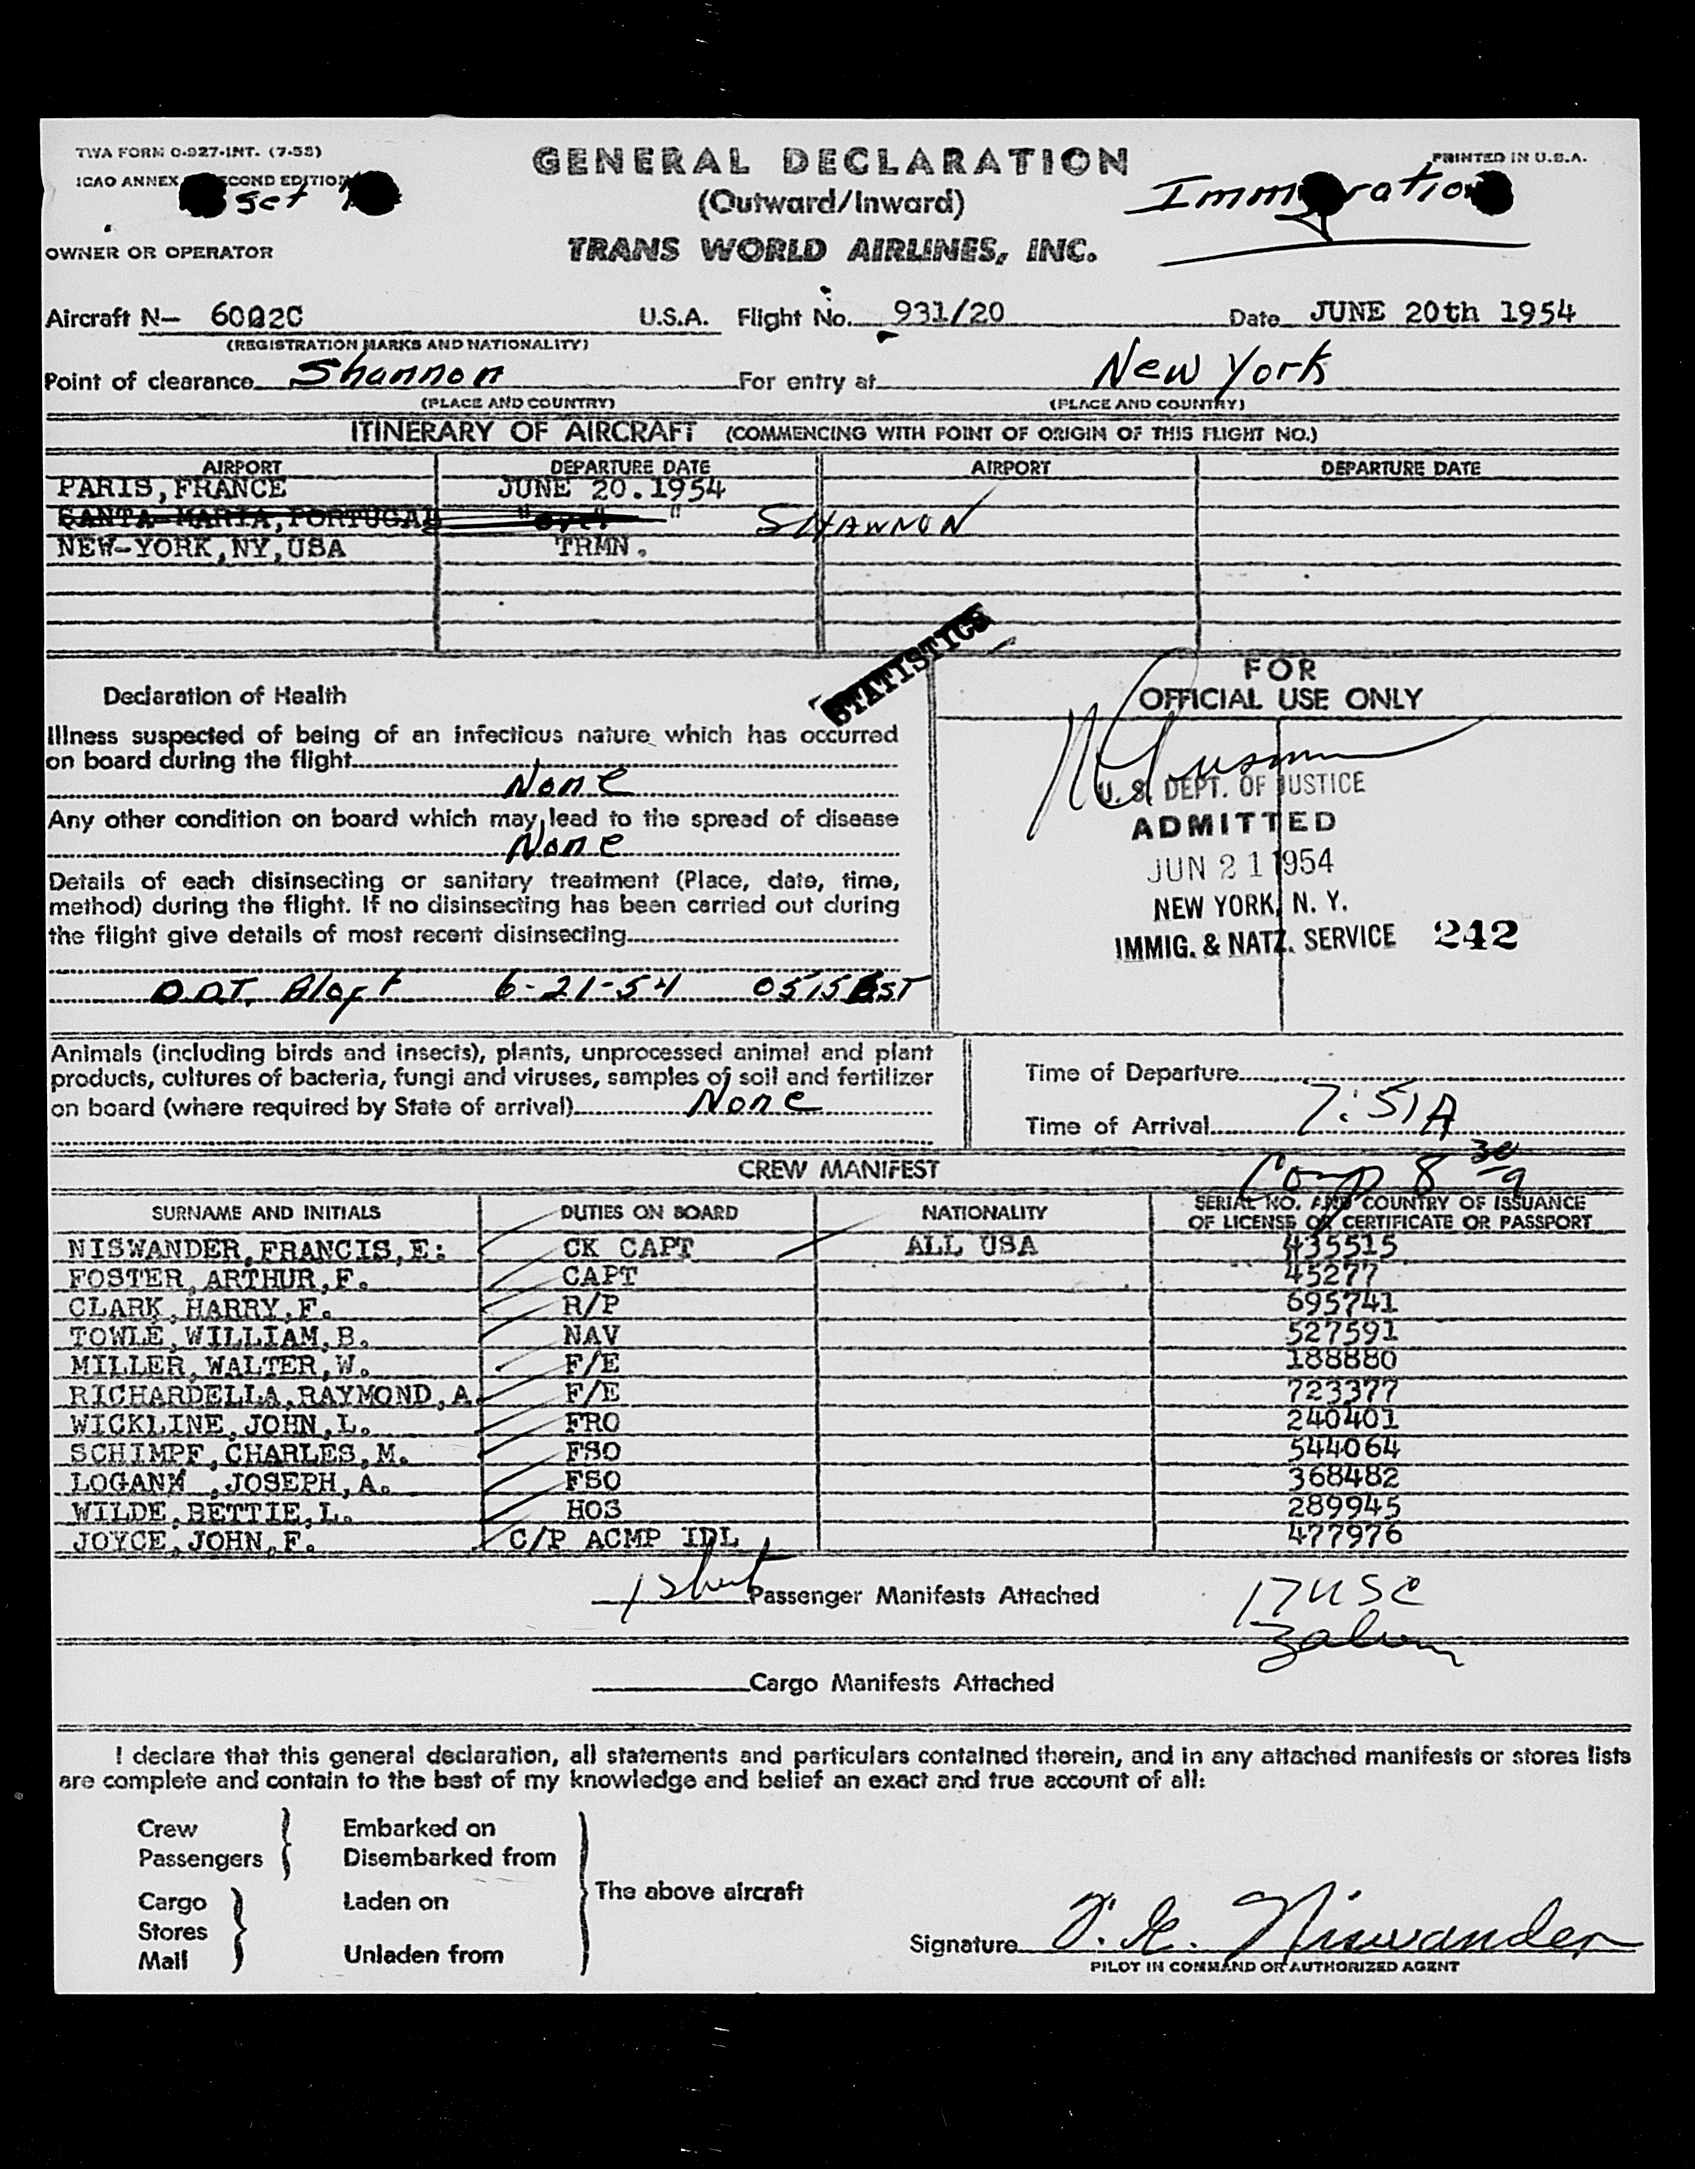 TWA FORM O-927-INT. (7-53)
GENERAL DECLARATION
PRINTED IN U.S.A.
ICAO ANNEX SECOND EDITION
Set
(Outward/Inward)
Immigration
OWNER OR OPERATOR
TRANS WORLD AIRLINES, INC.
Aircraft N— 6002C U.S.A. Flight No. 931/20 Date JUNE 20th 1954
(REGISTRATION MARKS AND NATIONALITY)
Point of clearance Shannon For entry at New York
(PLACE AND COUNTRY) (PLACE AND COUNTRY)
ITINERARY OF AIRCRAFT (COMMENCING WITH POINT OF ORIGIN OF THIS FLIGHT NO.)
AIRPORT DEPARTURE DATE AIRPORT DEPARTURE DATE
PARIS,FRANCE JUNE 20.1954
SANTA-MARIA,PORTUGAL " " SHANNON
NEW-YORK,NY,USA TRMN.
STATISTICS
FOR
OFFICIAL USE ONLY
Declaration of Health
Illness suspected of being of an infectious nature which has occurred
on board during the flight
None
Any other condition on board which may lead to the spread of disease
None
Details of each disinsecting or sanitary treatment (Place, date, time,
method) during the flight. If no disinsecting has been carried out during
the flight give details of most recent disinsecting
D.D.T. 6-21-54 0515 EST
U. S. DEPT. OF JUSTICE
ADMITTED
JUN 21 1954
NEW YORK, N. Y.
IMMIG. & NATZ. SERVICE 242
Animals (including birds and insects), plants, unprocessed animal and plant
products, cultures of bacteria, fungi and viruses, samples of soil and fertilizer
on board (where required by State of arrival) None
Time of Departure
Time of Arrival 7:51A
Comp 8 30/9
CREW MANIFEST
SURNAME AND INITIALS DUTIES ON BOARD NATIONALITY SERIAL NO. AND COUNTRY OF ISSUANCE
OF LICENSE OR CERTIFICATE OR PASSPORT
NISWANDER,FRANCIS,E: CK CAPT ALL USA 435515
FOSTER,ARTHUR,F. CAPT 45277
CLARK,HARRY,F. R/P 695741
TOWLE,WILLIAM,B. NAV 527591
MILLER,WALTER,W. F/E 188880
RICHARDELLA,RAYMOND,A F/E 723377
WICKLINE,JOHN,L. FRO 240401
SCHIMPF,CHARLES,M. FSO 544064
LOGAN ,JOSEPH,A. FSO 368482
WILDE,BETTIE,L. HOS 289945
JOYCE,JOHN,F. C/P ACMP IDL 477976
1 Sheet Passenger Manifests Attached
17 USC
3 alien
Cargo Manifests Attached
I declare that this general declaration, all statements and particulars contained therein, and in any attached manifests or stores lists
are complete and contain to the best of my knowledge and belief an exact and true account of all:
Crew Embarked on
Passengers Disembarked from
The above aircraft
Cargo Laden on
Stores
Mail Unladen from
Signature F. E. Niswander
PILOT IN COMMAND OR AUTHORIZED AGENT